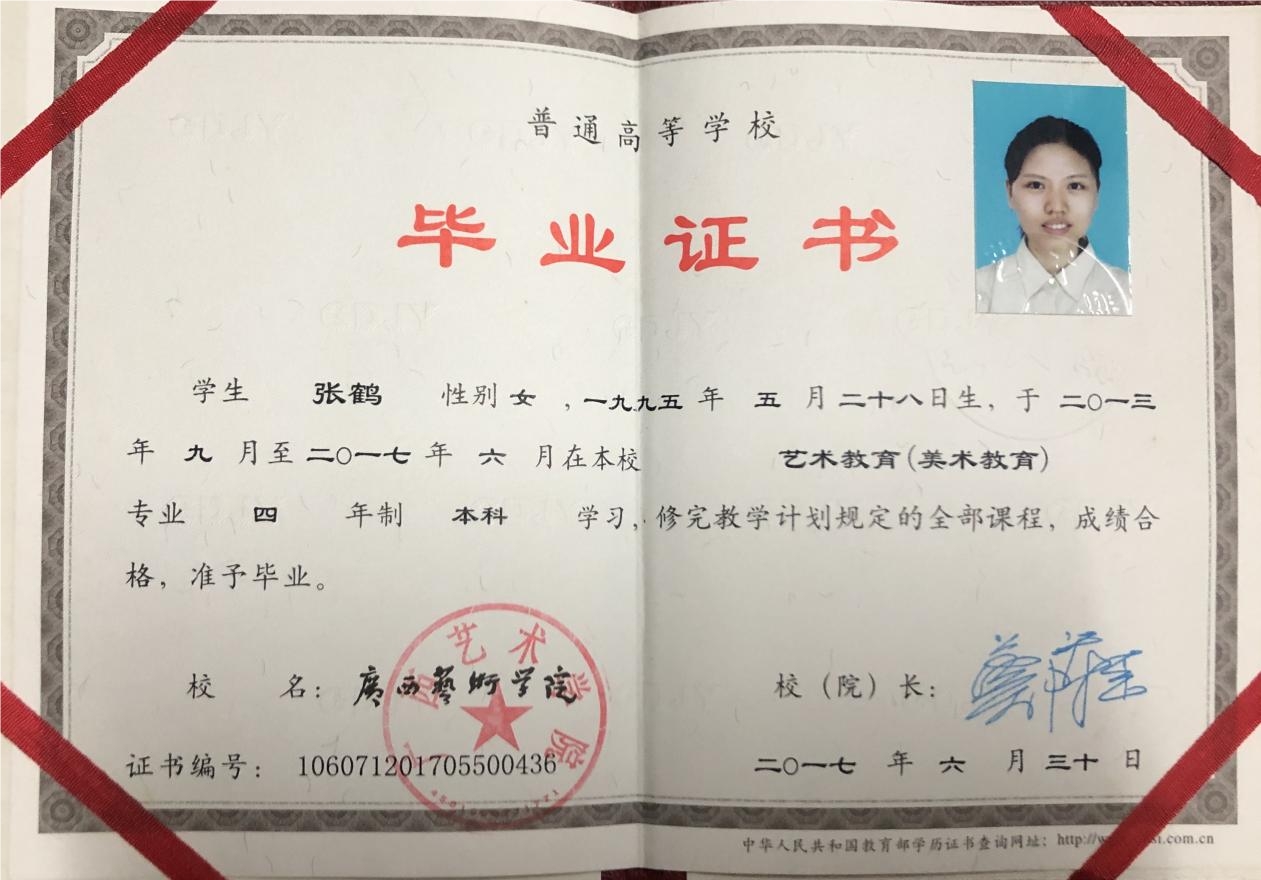 普通高等学校
毕业证书
学生 张鹤 性别 女 ,一九九五 年 五 月 二十八日生, 于 二〇一三
年 九 月至 二〇一七 年 六 月在本校 艺术教育(美术教育)
专业 四 年制 本科 学习, 修完教学计划规定的全部课程, 成绩合
格, 准予毕业。
校 名: 廣西藝術学院
校 (院) 长:
证书编号: 106071201705500436
二〇一七 年 六 月 三十 日
中华人民共和国教育部学历证书查询网址: